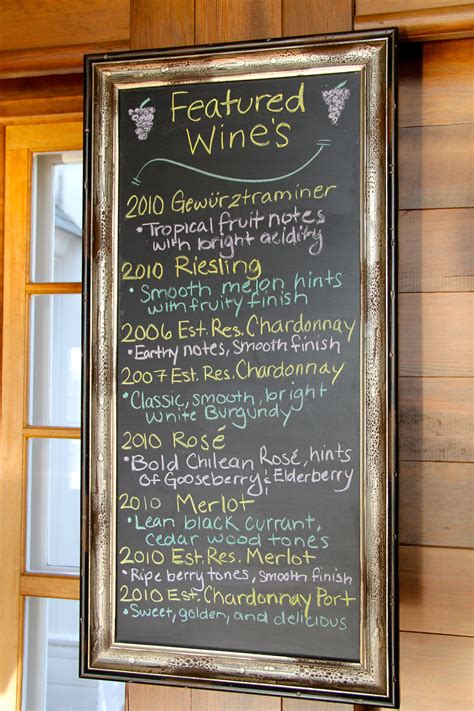 Featured
Wine's
2010 Gewürztraminer
• Tropical fruit notes
with bright acidity
2010 Riesling
• Smooth melon hints
with fruity finish
2006 Est. Res. Chardonnay
• Earthy notes, Smooth finish
2007 Est. Res. Chardonnay
• Classic, smooth, bright
white Burgundy
2010 Rosé
• Bold Chilean Rosé, hints
of Gooseberry & Elderberry
2010 Merlot
• Lean black currant,
cedar wood tones
2010 Est. Res. Merlot
• Ripe berry tones, smooth finish
2010 Est. Chardonnay Port
• Sweet, golden, and delicious